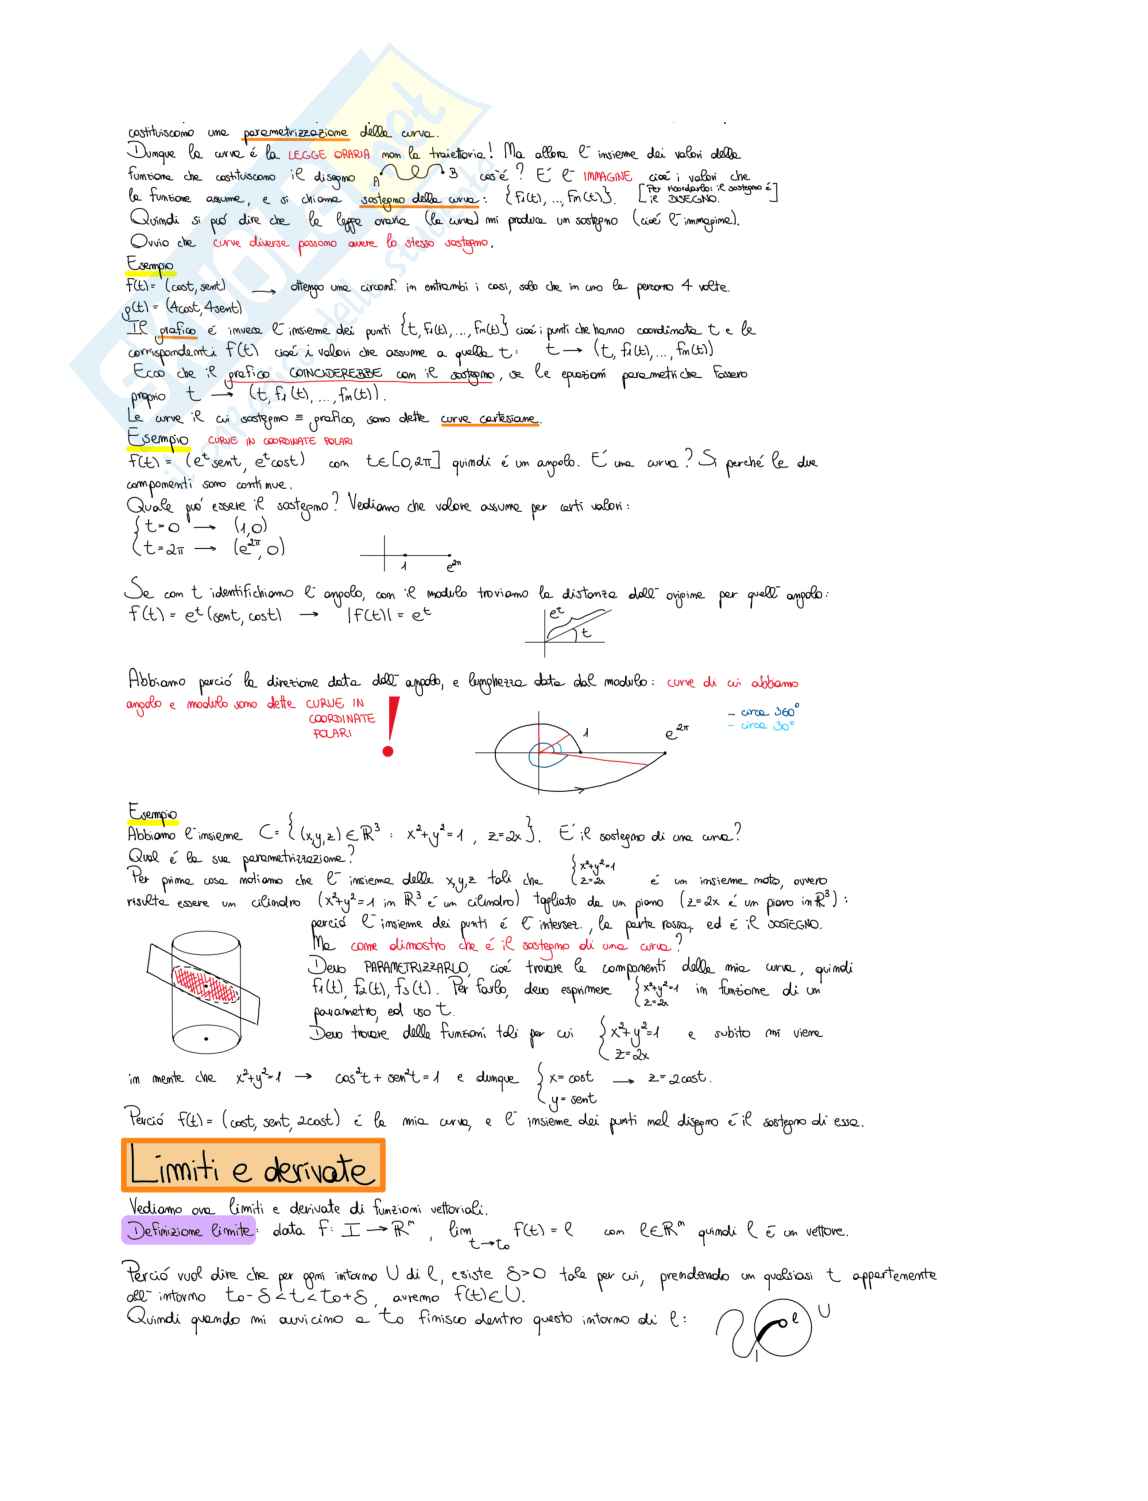 costituiscono una parametrizzazione della curva.
Dunque la curva é la LEGGE ORARIA non la traiettoria! Ma allora l'insieme dei valori della
funzione che costituiscono il disegno A B cos'é? É l'IMMAGINE cioé i valori che
la funzione assume, e si chiama sostegno della curva: {f1(t), ..., fm(t)}. [Per ricordarlo: il sostegno é il DISEGNO.]
Quindi si puó dire che la legge oraria (la curva) mi produce un sostegno (cioé l'immagine).
Ovvio che curve diverse possono avere lo stesso sostegno.
Esempio
f(t)= (cost, sent) → ottengo una circonf. in entrambi i casi, solo che in uno la percorro 4 volte.
g(t) = (4cost, 4sent)
Il grafico é invece l'insieme dei punti {t, f1(t), ..., fm(t)} cioé i punti che hanno coordinata t e le
corrispondenti f(t) cioé i valori che assume a quella t: t → (t, f1(t), ..., fm(t))
Ecco che il grafico COINCIDEREBBE con il sostegno, se le equazioni parametriche fossero
proprio t → (t, f1(t), ..., fm(t)).
Le curve il cui sostegno ≡ grafico, sono dette curve cartesiane.
Esempio CURVE IN COORDINATE POLARI
f(t) = (e^t sent, e^t cost) con t∈[0,2π] quindi é un angolo. É una curva? Sí perché le due
componenti sono continue.
Quale puó essere il sostegno? Vediamo che valore assume per certi valori:
{ t=0 → (1,0)
t=2π → (e^2π, 0)
1 e^2π
Se con t identifichiamo l'angolo, con il modulo troviamo la distanza dall'origine per quell'angolo:
f(t) = e^t (sent, cost) → |f(t)| = e^t
e^t
t
Abbiamo perció la direzione data dall'angolo, e lunghezza data dal modulo: curve di cui abbiamo
angolo e modulo sono dette CURVE IN
COORDINATE
POLARI
!
1 e^2π
- circa 360°
- circa 30°
Esempio
Abbiamo l'insieme C={(x,y,z)∈ℝ^3 : x²+y²=1, z=2x}. É il sostegno di una curva?
Qual é la sua parametrizzazione?
Per prima cosa notiamo che l'insieme delle x,y,z tali che { x²+y²=1 z=2x é un insieme noto, ovvero
risulta essere un cilindro (x²+y²=1 in ℝ^3 é un cilindro) tagliato da un piano (z=2x é un piano in ℝ^3):
perció l'insieme dei punti é l'interse., la parte rossa, ed é il SOSTEGNO.
Ma come dimostro che é il sostegno di una curva?
Devo PARAMETRIZZARLO, cioé trovare le componenti della mia curva, quindi
f1(t), f2(t), f3(t). Per farlo, devo esprimere { x²+y²=1 z=2x in funzione di un
parametro, ed uso t.
Devo trovare delle funzioni tali per cui { x²+y²=1 z=2x e subito mi viene
in mente che x²+y²=1 → cos²t + sen²t = 1 e dunque { x=cost y=sent → z=2cost.
Perció f(t) = (cost, sent, 2cost) é la mia curva, e l'insieme dei punti nel disegno é il sostegno di essa.
Limiti e derivate
Vediamo ora limiti e derivate di funzioni vettoriali.
Definizione limite: data f: I → ℝ^m, lim t→t0 f(t) = l con l∈ℝ^m quindi l é un vettore.
Perció vuol dire che per ogni intorno U di l, esiste δ>0 tale per cui, prendendo un qualsiasi t appartenente
all'intorno t0-δ<t<t0+δ, avremo f(t)∈U.
Quindi quando mi avvicino a t0 finisco dentro questo intorno di l:
l U